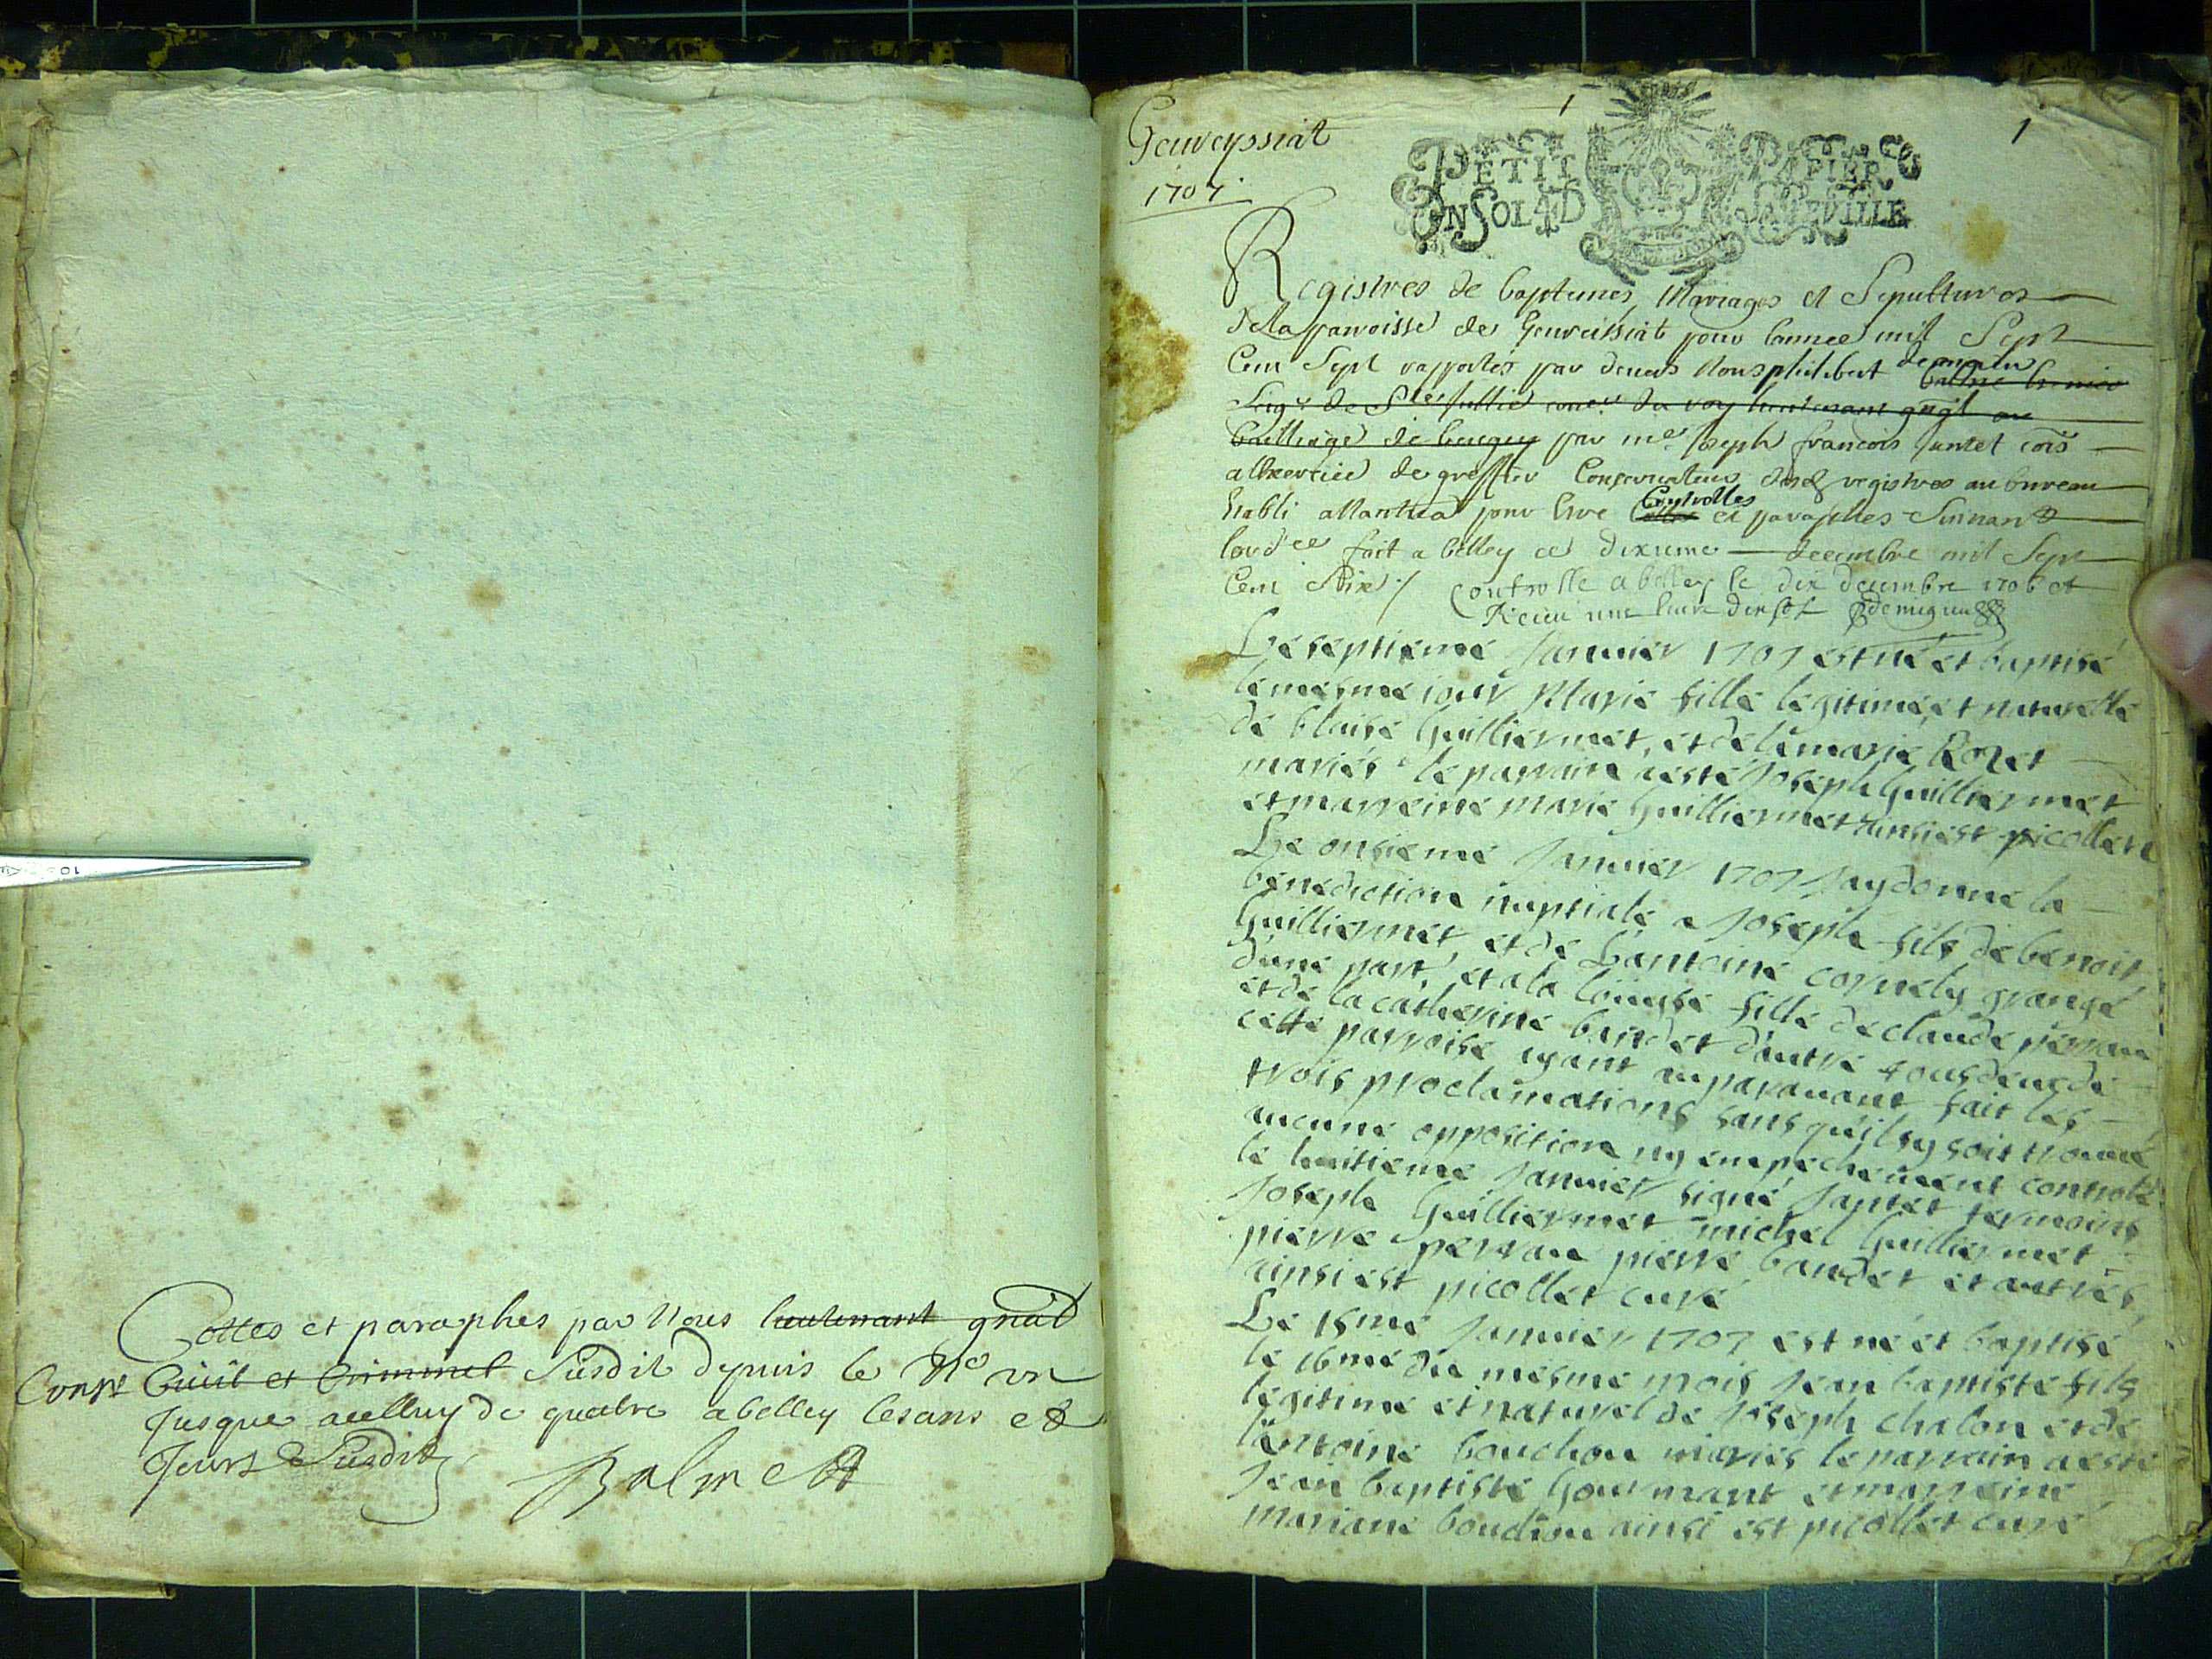 Cottes et paraphes par Nous lieutenant gnãl
Consr Civil et Criminel Susdit depuis le No un
Jusque a celluy de quatre a belley les ans et
Jours Susdits
Balme
Geuveyssiat
1707
1
1
PETIT PAPIER
UN SOL 4 D LA FEVILLE
Registres de baptemes, Mariages et Sepultures
de la parroisse de Geuveissiat pour lannee mil Sept
Cent Sept rapportés par devers Nous philibert
Seigr de Ste Jullie coner du roy lieutenant gñgl au
bailliage de beugey par me Joseph francois Jantet com̃is
a lexercice de greffier Conservateur desd registres au bureau
Etabli a Nantua pour Etre Cottes Controlles et paraphes Suivant
lord.ce fait a belley ce dixieme decembre mil Sept
Cent Six / Controlle a belley le dix decembre 1706 et
Receu une livre dix sol
Le septieme Janvier 1707 est né et baptisé
le mesme iour Marie fille legitime et naturelle
de blaise Guilliermet, et de la marie Rozet
mariés le parrain a esté Joseph Guilliermet
et marreine marie Guilliermet ainsi est picollet c
Le onsieme Janvier 1707 Jay donné la
benediction nuptiale a Joseph fils de benoit
Guilliermet, et de L'antoine cornely grangé
d'une part, et a la loüeyse fille de claude perrau
et de la catherine baudet d'autre tous deux de
cette parroise ayant auparavant fait les
trois proclamations sans qu'il sy soit trouvé
aucune opposition ny empechement controlé
le huitieme Janvier signé Jantet termoins
Joseph Guilliermet michel Guilliermet
pierre perrau pierre baudet et autres
ainsi est picollet curé
Le 15me Janvier 1707 est né et baptisé
le 16me du mesme mois Jean baptiste fils
legitime et naturel de Joseph chalon et de
l'antoine bouchou mariés le parrain a esté
Jean baptiste Gourmant et marreine
mariane boudou ainsi est picollet curé